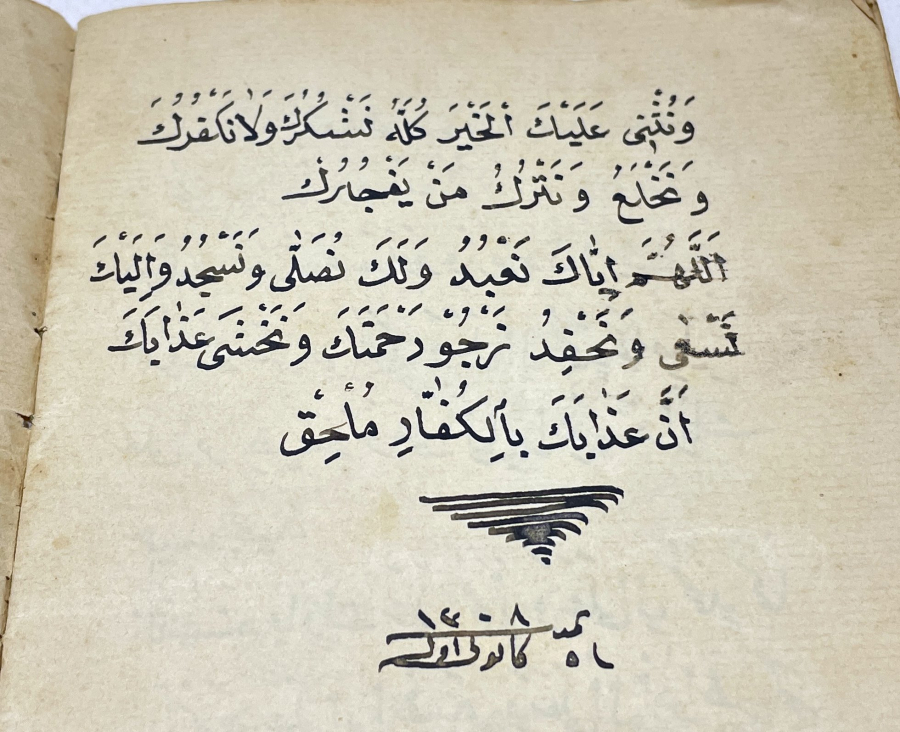 وَنُثْنِى عَلَيْكَ الْخَيْرَ كُلَّهُ نَشْكُرُكَ وَلَا نَكْفُرُكَ
وَنَخْلَعُ وَنَتْرُكُ مَنْ يَفْجُرُكَ
اَللّٰهُمَّ اِيَّاكَ نَعْبُدُ وَلَكَ نُصَلّٰى وَنَسْجُدُ وَاِلَيْكَ
نَسْعٰى وَنَحْفِدُ نَرْجُو رَحْمَتَكَ وَنَخْشٰى عَذَابَكَ
اَنَّ عَذَابَكَ بِالْكُفَّارِ مُلْحِقْ
١٣٠٨
كانون اول